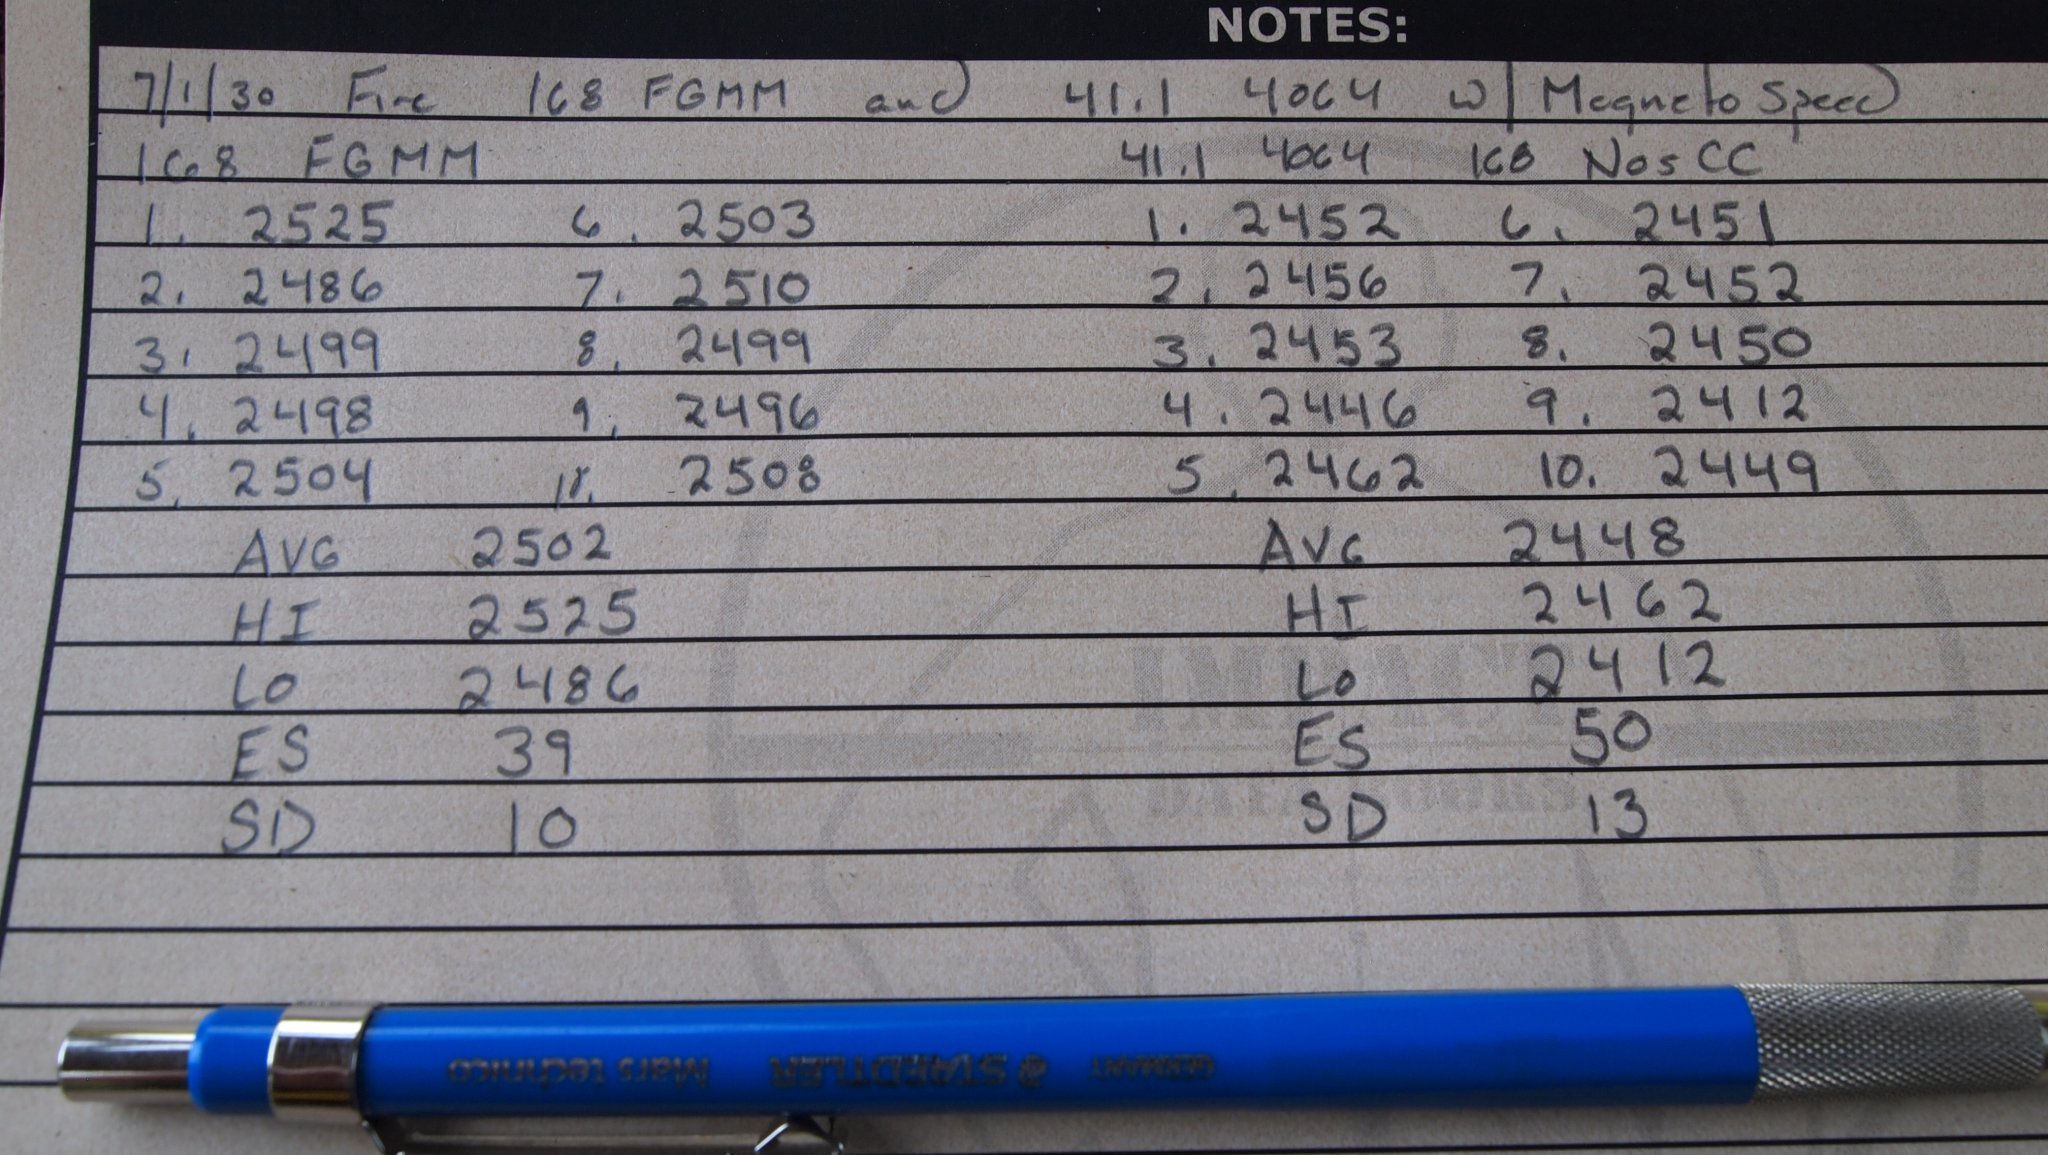 NOTES:
7/1/30 Fire 168 FGMM and 41.1 4064 w/ MagnetoSpeed
168 FGMM 41.1 4064 168 Nos CC
1. 2525 6. 2503 1. 2452 6. 2451
2. 2486 7. 2510 2. 2456 7. 2452
3. 2499 8. 2499 3. 2453 8. 2450
4. 2498 9. 2496 4. 2446 9. 2412
5. 2504 2508 5. 2462 10. 2449
AVG 2502 AVG 2448
HI 2525 HI 2462
LO 2486 Lo 2412
ES 39 ES 50
SD 10 SD 13
IMPACT
DATA BOOKS
Mars technico STAEDTLER GERMANY